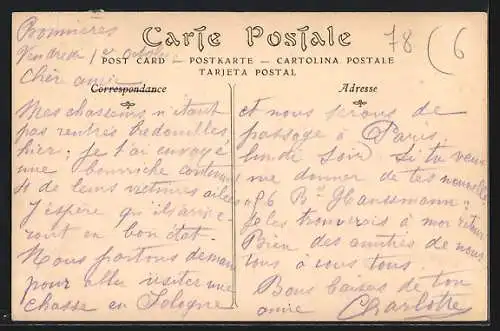 Bonnières
Vendredi 1er octobre
Chère amie
Carte Postale
78
6
POST CARD — POSTKARTE — CARTOLINA POSTALE
TARJETA POSTAL
Correspondance
Adresse
Mes chasseurs n'étant
pas rentrés bredouilles
hier; je t'ai envoyé
une bourriche contenant
de leurs victimes ailées
J'espère qu'ils arrive-
ront en bon état.
Nous partons demain
pour aller visiter une
chasse en Sologne
et nous serons de
passage à Paris
lundi soir. Si tu veux
me donner de tes nouvelles
96 Bd Haussmann
je les trouverais à mon retour
Bien des amitiés de nous
tous à vous tous.
Bons baisers de ton
amie Charlotte